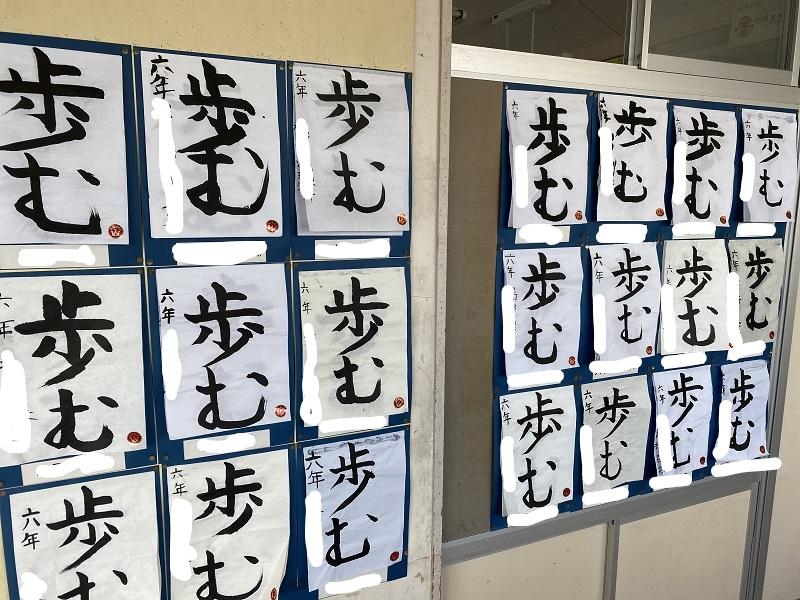 歩む
歩む
六年
歩む
六年
歩む
六年
歩む
六年
歩む
六年
歩む
六年
歩む
六年
歩む
六年
歩む
六年
歩む
歩む
歩む
六年
歩む
六年
歩む
六年
歩む
歩む
六年
歩む
六年
歩む
六年
歩む
六年
歩む